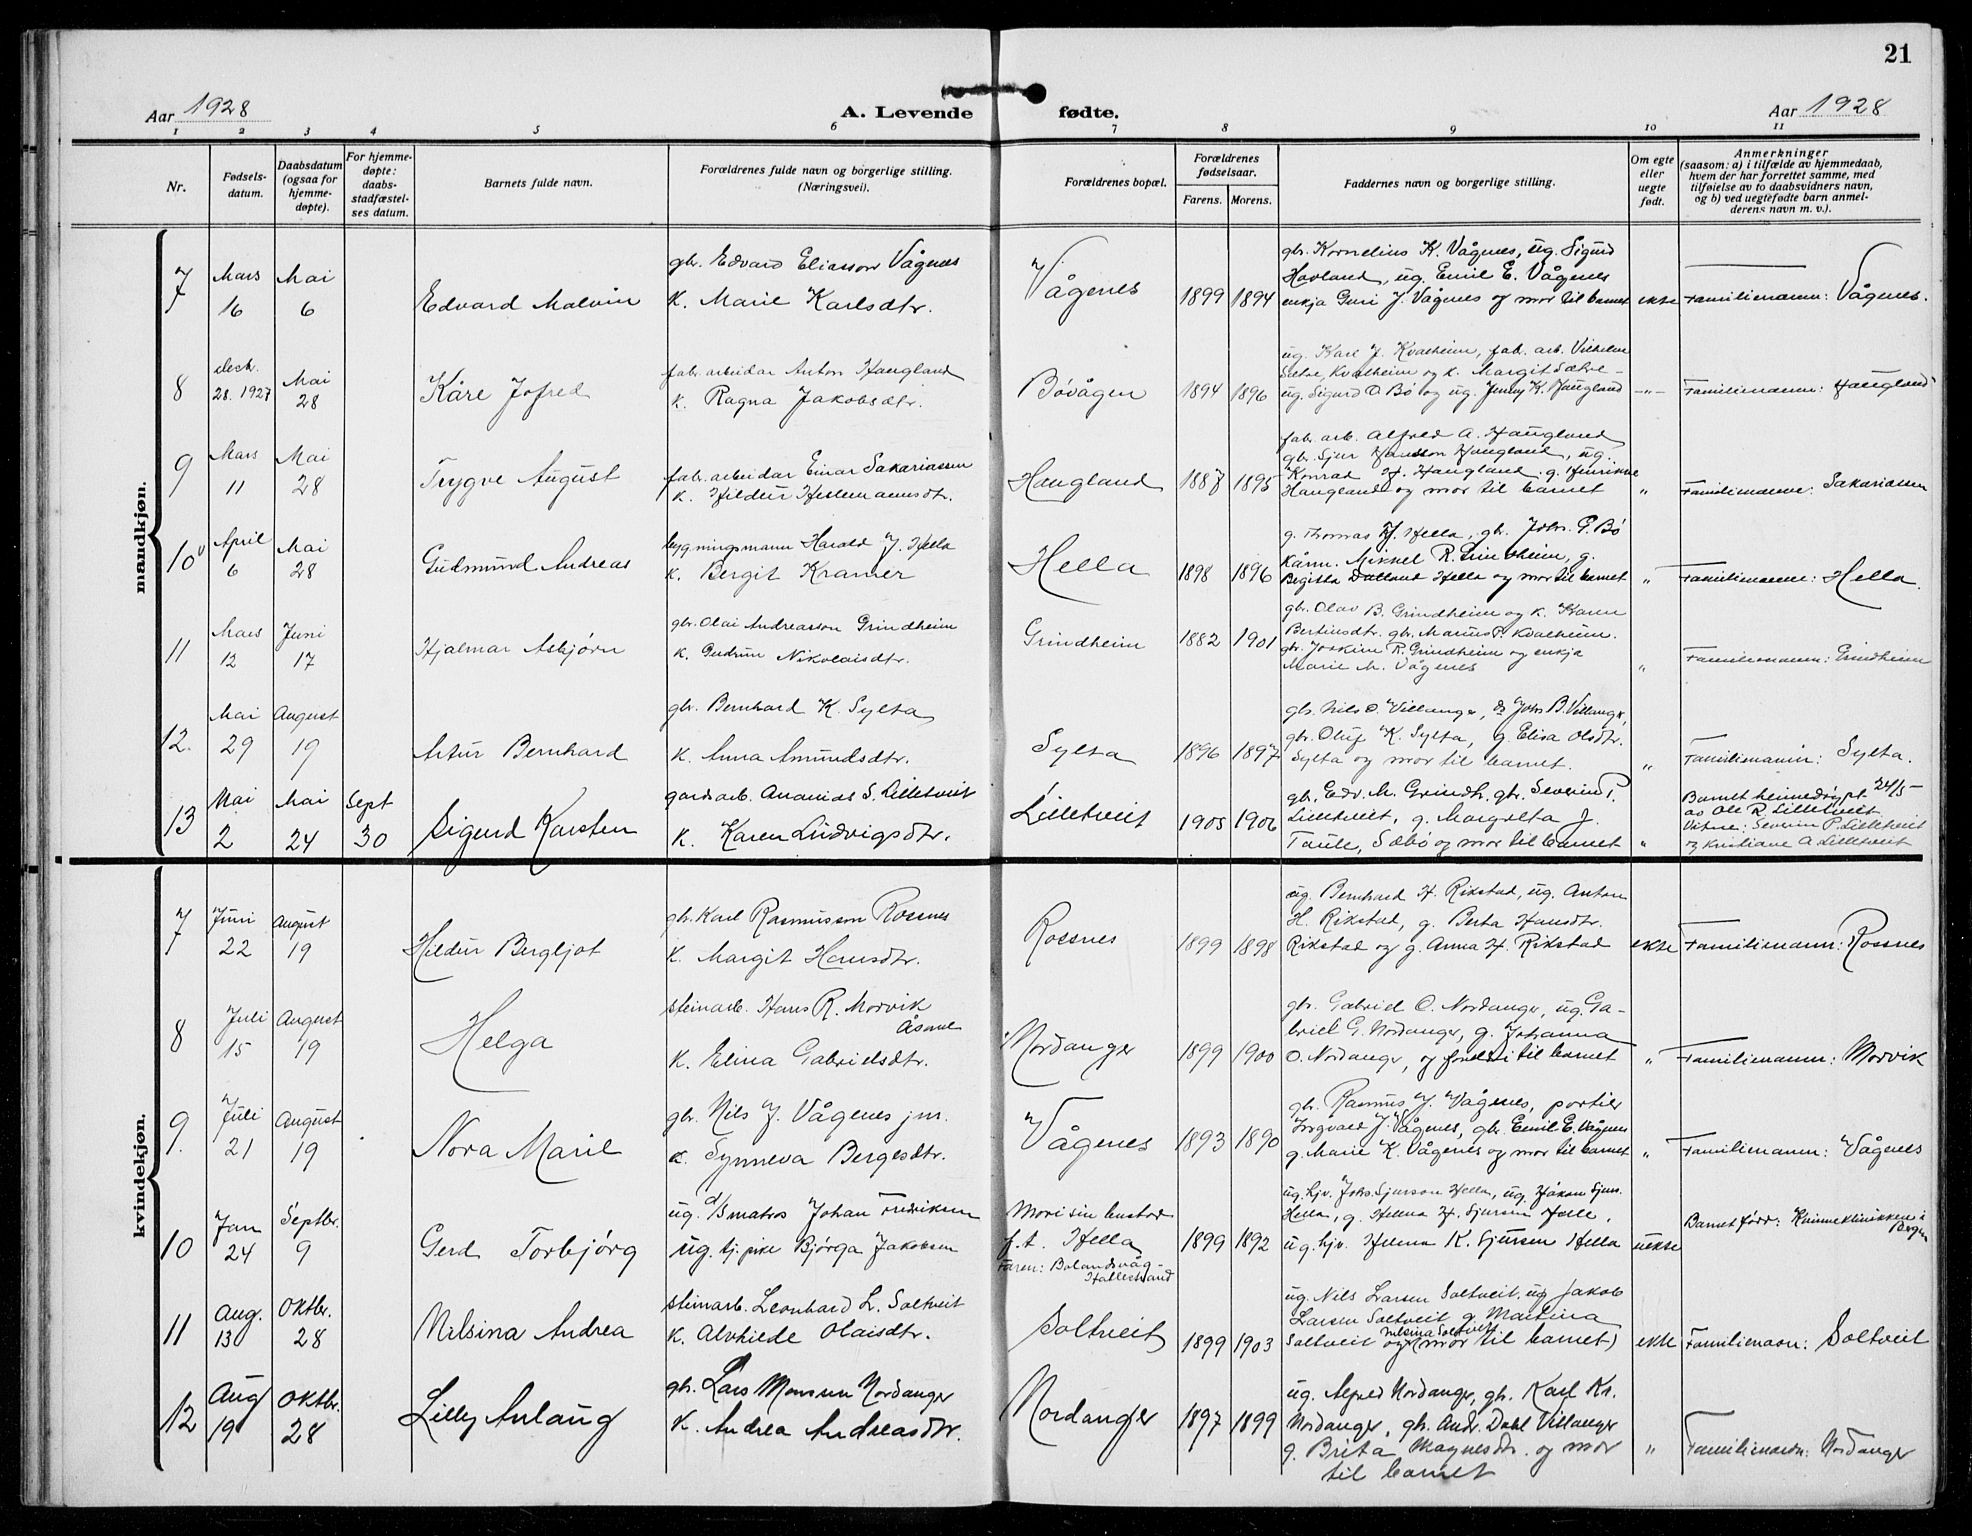 21
Aar 1928
A. Levende fødte.
Aar 1928
1 2 3 4 5 6 7 8 9 10 11
Nr.
Fødsels-
datum.
Daabsdatum
(ogsaa for
hjemme-
døpte).
For hjemme-
døpte:
daabs-
stadfæstel-
ses datum.
Barnets fulde navn.
Forældrenes fulde navn og borgerlige stilling.
(Næringsvei).
Forældrenes bopæl.
Forældrenes
fødselsaar.
Farens. Morens.
Faddernes navn og borgerlige stilling.
Om egte
eller
uegte
født.
Anmerkninger
(saasom: a) i tilfælde av hjemmedaab,
hvem der har forrettet samme, med
tilføielse av to daabsvidners navn,
og b) ved uegtefødte barn anmel-
derens navn m. v.).
mandkjøn.
7 Mars 16 Mai 6 Edvard Malvin
gbr. Edvard Eliasson Vågenes
K. Marie Karlsdtr.
Vågenes 1899 1894
gbr. Kornelius K. Vågenes, ug. Sigurd
Hovland, ug. Emil E. Vågenes
enkja Guri J. Vågenes og mor til barnet
ekte Familienamn: Vågenes.
8 desb. 28. 1927 Mai 28 Kåre Jofred
fabr. arbeidar Anton Haugland
K. Ragna Jakobsdtr.
Bøvågen 1894 1896
ug. Karl J. Kvalheim, fab. arb. Vilhelm
Sætre, Kvalheim og K. Margit Sætre
ug. Sigurd O. Bø og ug. Jenny K. Haugland
-"- Familienamn: Haugland
9 Mars 11 Mai 28 Trygve August
fabr. arbeidar Einar Sakariassen
K. Hildur Hestemannsdtr.
Haugland 1887 1895
fabr. arb. Alfred A. Haugland
gbr. Sjur Hansson Haugland, ug.
Konrad H. Haugland, g. Henrikke
Haugland og mor til barnet
" Familienamn: Sakariassen
10 April 6 Mai 28 Gudmund Andreas
bygningsmann Harald J. Hella
K. Bergit Kramer
Hella 1898 1896
g. Thomas H. Hella, gbr. Johs. G. Bø
Kårm. Mikkel R. Grindheim, g.
Begitta Dalland Hella og mor til barnet
" Familienamn: Hella.
11 Mars 12 Juni 17 Hjalmar Asbjørn
gbr. Olai Andreasson Grindheim
K. Gudrun Nikolaisdtr.
Grindheim 1882 1901
gbr. Olav B. Grindheim og K. Karen
Bertinsdtr. gbr. Marius P. Kvalheim.
gbr. Joakim R. Grindheim og enkja
Marie M. Vågenes
" Familienamn: Grindheim
12. Mai 29 August 19 Artur Bernhard
gbr. Bernhard K. Sylta
K. Anna Amundsdtr.
Sylta 1896 1897
gbr. Nils O. Villanger, Johs B. Villanger,
gbr. Oluf K. Sylta, g. Elisa Olsdtr.
Sylta og mor til barnet.
" Familienamn: Sylta.
13 Mai 2 Mai 24 Sept 30 Sigurd Karsten
gardsarb. Ananias S. Lilletveit
K. Karen Ludvigsdtr.
Lilletveit 1905 1906
gbr. Edv. M. Grindh. gbr. Severin P.
Lilletveit, g. Margreta J.
Taule, Sæbø og mor til barnet
" Barnet heimedøypt 24/5 -
av Ole R. Lilletveit
Vitne: Severin P. Lilletveit
og Kristiane A Lilletveit
kvindekjøn.
7 Juni 22 August 19 Hildur Bergljot
gbr. Karl Rasmussen Rossnes
K. Margit Hansdtr.
Rossnes 1899 1898
ug. Bernhard H. Rikstad, ug. Anton
H. Rikstad, g. Berta Hansdtr.
Rikstad og g. Anna H. Rikstad
ekte Familienamn: Rossnes
8 Juli 15 August 19 Helga
steinarb. Hans R. Morvik
Åsane
K. Elina Gabrielsdtr.
Nordanger 1899 1900
gbr. Gabriel O. Nordanger, ug. Ga-
briel G. Nordanger, g. Johanna
O. Nordanger, og foreldri til barnet
" Familienamn: Morvik
9. Juli 21 August 19 Nora Marie
gbr. Nils J. Vågenes jnr.
K. Synneva Bergesdtr.
Vågenes 1893 1890
gbr. Rasmus J. Vågenes, portier
Ingvald J. Vågenes, gbr. Emil E. Vågenes
g. Marie K. Vågenes og mor til barnet
" Familienamn: Vågenes
10 Jan 24 Septbr. 9 Gerd Torbjørg
ug. d/s matros Johan Fredriksen
ug. tj. pike Bjørga Jakobsen
Mori sin bustad
f. t. Hella
Faren: Bolandsvåg -
Hallestrand
1899 1892
ug. hjv. Johs. Sjurson Hella, ug. Håkon Sjurs.
Hella, g. Helena H. Sjursen Hella,
ug. hjv. Helena K. Sjursen Hella
uekte Barnet født: Kvinneklinikken i
Bergen
11 Aug. 13 Oktbr. 28 Nilsina Andrea
steinarb. Leonhard L. Soltveit
K. Alvhilde Olaisdtr.
Soltveit 1899 1903
ug. Nils Larsen Soltveit, ug. Jakob
Larsen Soltveit g. Martina
Soltveit og Nilsina Soltveit (mor til barnet)
ekte Familienavn: Soltveit
12 Aug 19 Oktbr. 28 Lilly Anlaug
gbr. Lars Monsen Nordanger
K. Andrea Andreasdtr.
Nordanger 1897 1899
ug. Alfred Nordanger, gbr. Karl Kr.
Nordanger, gbr. Andr. Dahl Villanger
g. Brita Magnesdtr. og mor
til barnet
" Familienavn: Nordanger